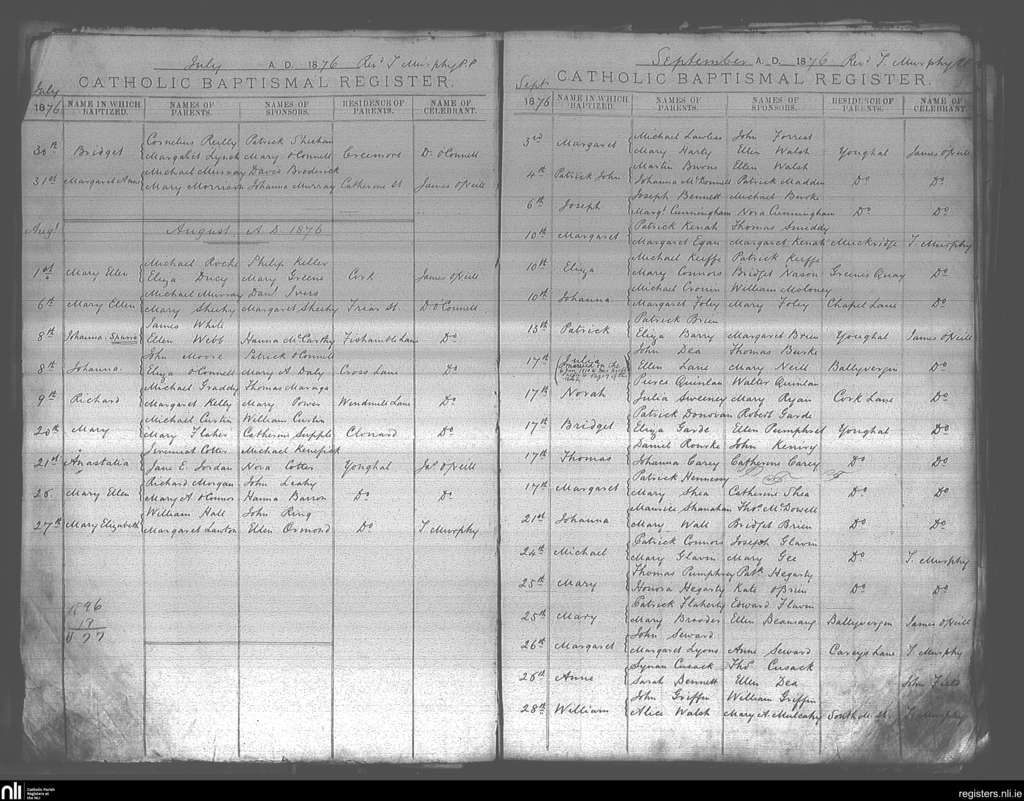 July A.D. 1876 Revd T Murphy P.P
CATHOLIC BAPTISMAL REGISTER.
July
1876 NAME IN WHICH BAPTIZED. NAMES OF PARENTS. NAMES OF SPONSORS. RESIDENCE OF PARENTS. NAME OF CELEBRANT.
Cornelius Reilly Patrick Sheehan
30th Bridget Margaret Lynch Mary O'Connell Creemore D. O'Connell
Michael Murray David Broderick
31st Margaret Anne Mary Morrison Johanna Murray Catherine St James O'Neill
Augt August A.D. 1876
Michael Roche Philip Keller
1st Mary Ellen Eliza Ducey Mary Greene Cork James O'Neill
Michael Murray Danl Ivers
6th Mary Ellen Mary Sheehy Margaret Sheehy Friar St. D. O'Connell
James White
8th Johanna Ellen Webb Hanna McCarthy Fishamble Lane Do
John Moore Patrick O'Connell
8th Johanna Eliza O'Connell Mary A Daly Cross Lane Do
Michael Graddy Thomas
9th Richard Margaret Kelly Mary Power Windmill Lane Do
Michael Curtin William Curtin
20th Mary Mary Catherine Supple Clonard Do
Jeremiah Cotter Michael
21st Anastatia Jane E. Jordan Nora Cotter Youghal Jas O'Neill
Richard Morgan John Leahy
26. Mary Ellen Mary A O'Connor Hanna Barron Do Do
William Hall John Ring
27th Mary Elizabeth Margaret Lawton Ellen Ormond Do T. Murphy
September A.D. 1876 Revd T. Murphy P.P.
CATHOLIC BAPTISMAL REGISTER.
Sept
1876 NAME IN WHICH BAPTIZED. NAMES OF PARENTS. NAMES OF SPONSORS. RESIDENCE OF PARENTS. NAME OF CELEBRANT.
Michael Lawless John Forrest
3rd Margaret Mary Harty Ellen Walsh Youghal James O'Neill
Martin Burns Ellen Walsh
4th Patrick John Johanna McDonnell Patrick Madden Do Do
Joseph Bennett Michael Burke
6th Joseph Margt Cunningham Nora Cunningham Do Do
Patrick Kenah Thomas Smiddy
10th Margaret Margaret Egan Margaret Kenah Muckridge T. Murphy
Michael Keiffe Patrick Keiffe
10th Eliza Mary Connors Bridget Nason Greenes Quay Do
Michael Cronin William Moloney
10th Johanna Margaret Foley Mary Foley Chapel Lane Do
Patrick Brien
13th Patrick Eliza Barry Margaret Brien Youghal James O'Neill
John Dea Thomas Burke
17th Julia Ellen Lane Mary Neill Ballyvergin Do
Pierce Quinlan Walter Quinlan
17th Norah Julia Sweeney Mary Ryan Cork Lane Do
Patrick Donovan Robert Garde
17th Bridget Eliza Garde Ellen Pumphret Youghal Do
Daniel Rourke John Keniry
17th Thomas Johanna Carey Catherine Carey Do Do
Patrick Hennessy
17th Margaret Mary Shea Catherine Shea Do Do
Maurice Shanahan Thos McDonell
21st Johanna Mary Wall Bridget Brien Do Do
Patrick Connors Joseph Glavin
24th Michael Mary Glavin Mary Gee Do T. Murphy
Thomas Pumphrey Patk Hegarty
25th Mary Honora Hegarty Kate O'Brien Do Do
Patrick Flaherty Edward Flavin
25th Mary Mary Brooder Ellen Beausang Ballyvergin James O'Neill
John Seward
26th Margaret Margaret Lyons Anne Seward Careys Lane T. Murphy
Synan Cusack Thos Cusack
26th Anne Sarah Bennett Ellen Dea
John Griffin William Griffin
28th William Alice Walsh Mary A Mulcahy South M. St. T. Murphy
nli Catholic Parish Registers at the NLI
registers.nli.ie